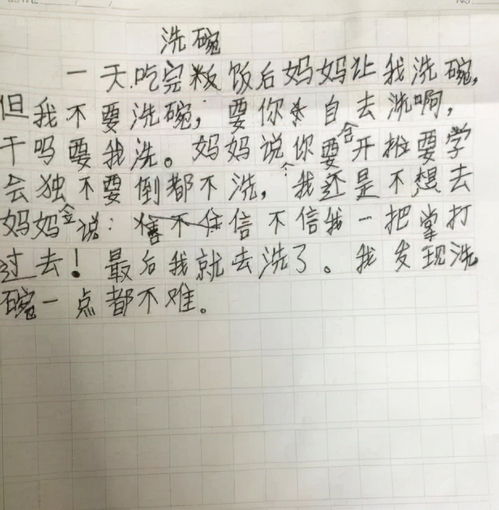 洗碗
一天.吃完粄饭后妈妈让我洗碗,
但我不要洗碗, 要你自去洗啊,
干吗要我洗。妈妈说你要开推要学
会独不要倒都不洗, 我还是不想去
妈妈说: 信不信我一把掌打
过去! 最后我就去洗了。我发现洗
碗一点都不难。